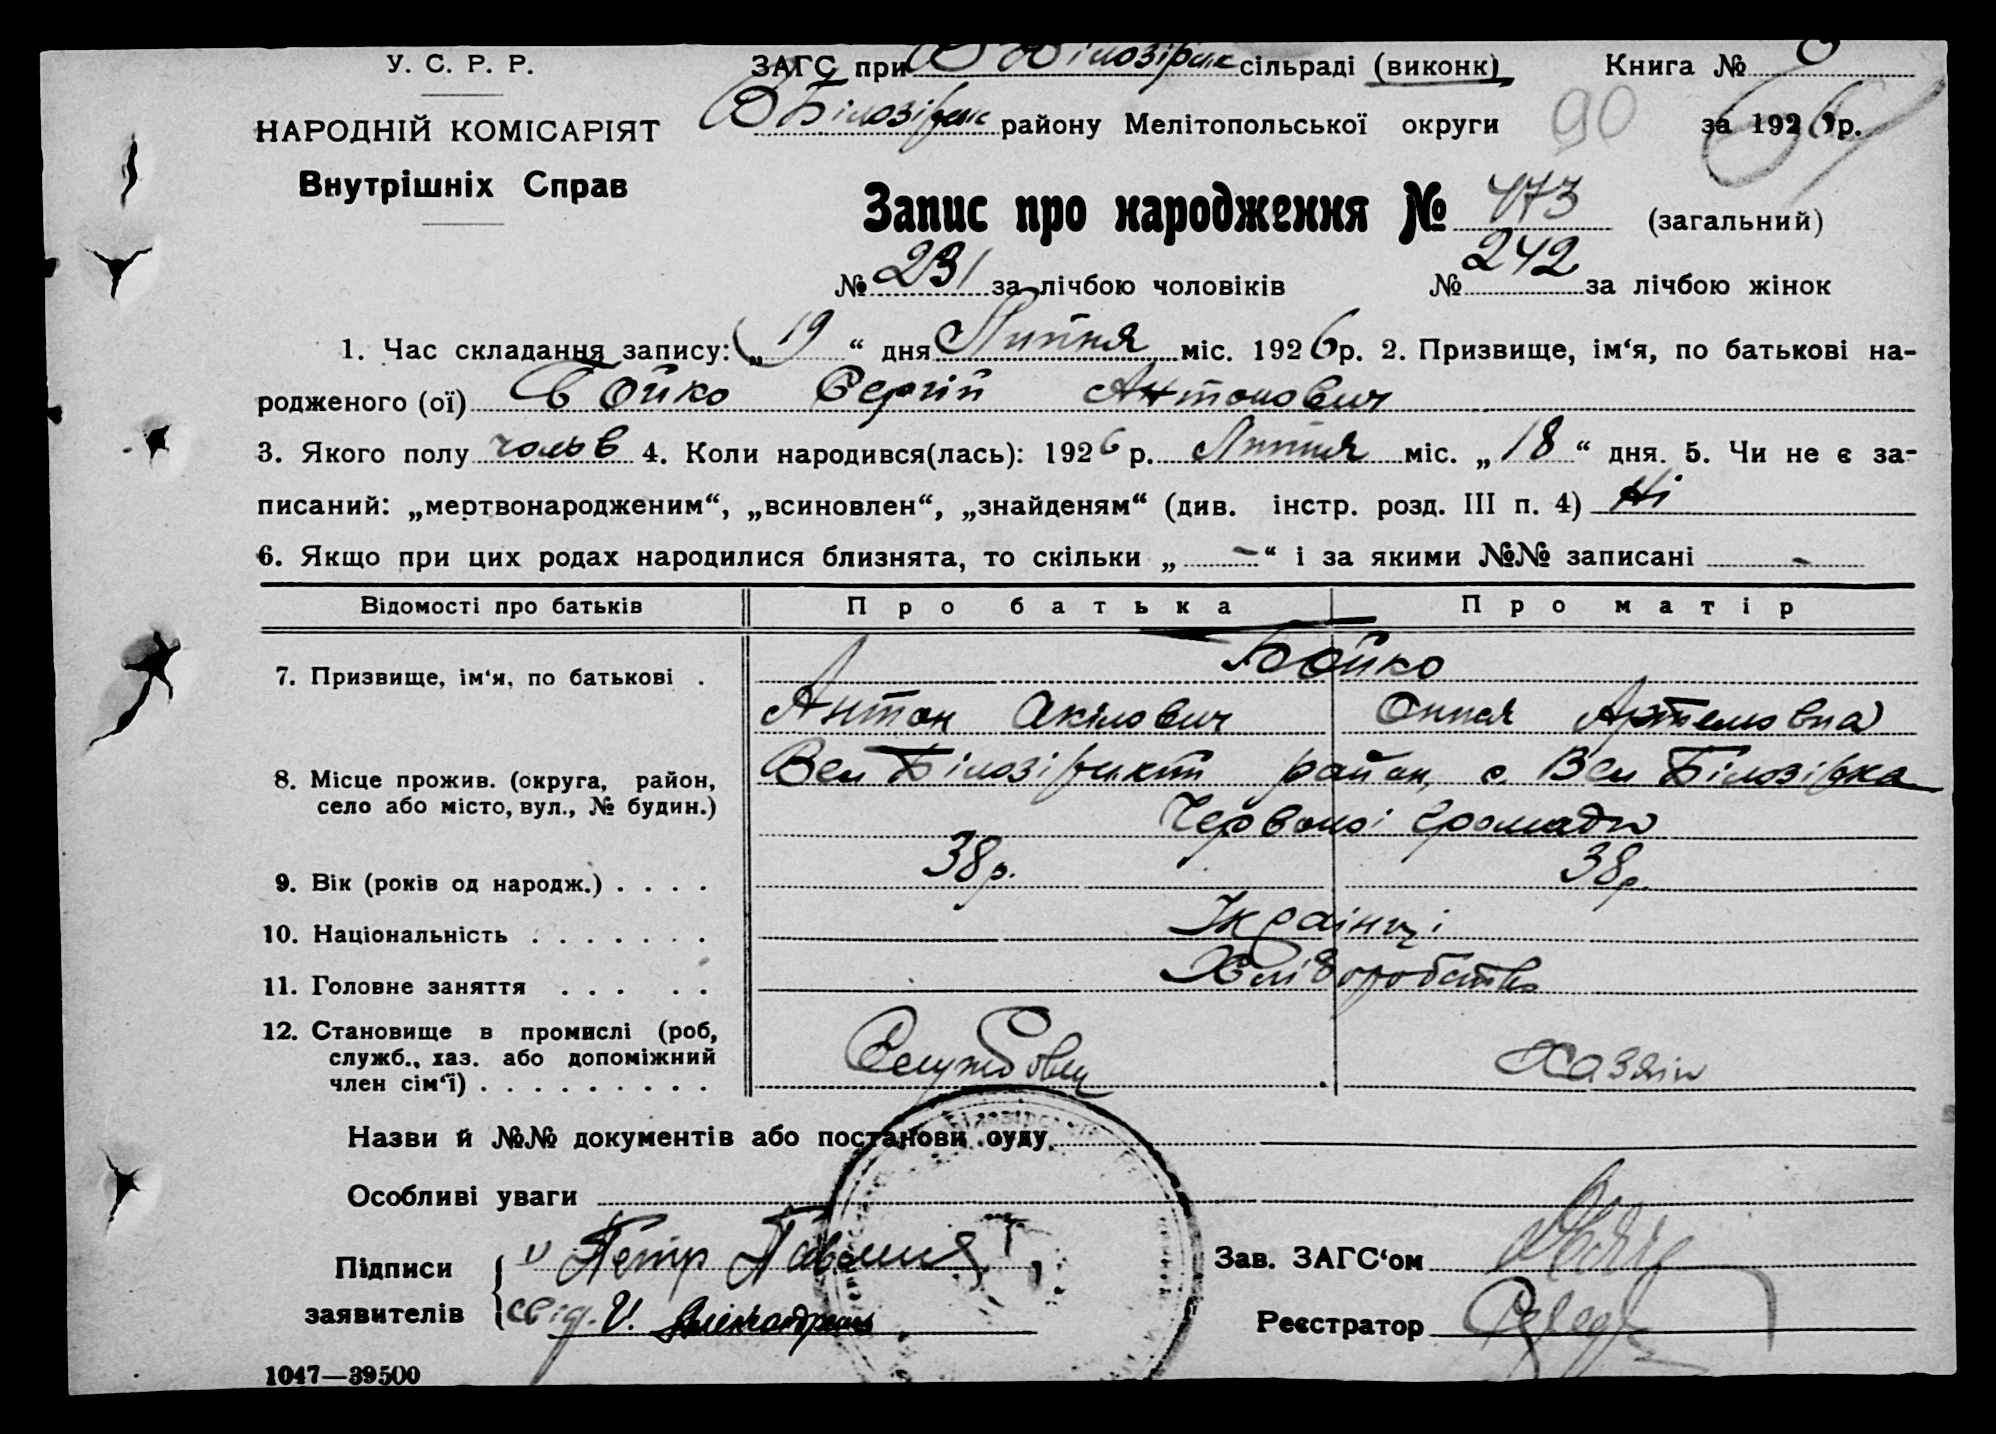 У. С. Р. Р.
ЗАГС при В Білозірськ сільраді (виконк) Книга №
НАРОДНІЙ КОМІСАРІЯТ
В Білозірськ району Мелітопольської округи 90 за 1926р.
Внутрішніх Справ
Запис про народження № 473 (загальний)
№ 231 за лічбою чоловіків № 242 за лічбою жінок
1. Час складання запису: „19“ дня Липня міс. 1926р. 2. Призвище, ім‘я, по батькові на-
родженого (ої) Бойко Сергій Антонович
3. Якого полу чолов 4. Коли народився(лась): 1926 р. Липня міс. „18“ дня. 5. Чи не є за-
писаний: „мертвонародженим“, „всиновлен“, „знайденям“ (див. інстр. розд. III п. 4) Ні
6. Якщо при цих родах народилися близнята, то скільки „ – “ і за якими №№ записані -
Відомості про батьків Про батька Про матір
7. Призвище, ім‘я, по батькові . Бойко
Антон Акілович Ольга Артемовна
8. Місце прожив. (округа, район, Вел Білозірський район, с. Вел Білозірка
село або місто, вул., № будин.) Червоної Громади
9. Вік (років од народж.) . . . . 38р. 38р.
10. Національність . . . . . . . Українці
11. Головне заняття . . . . . Хліборобство
12. Становище в промислі (роб,
служб., хаз. або допоміжний Службовец Хазяїн
член сім‘ї) . . . . . . . . .
Назви й №№ документів або постанови суду
Особливі уваги
Підписи Петр Зав. ЗАГС‘ом
заявителів свід. И. Реєстратор
1047—39500